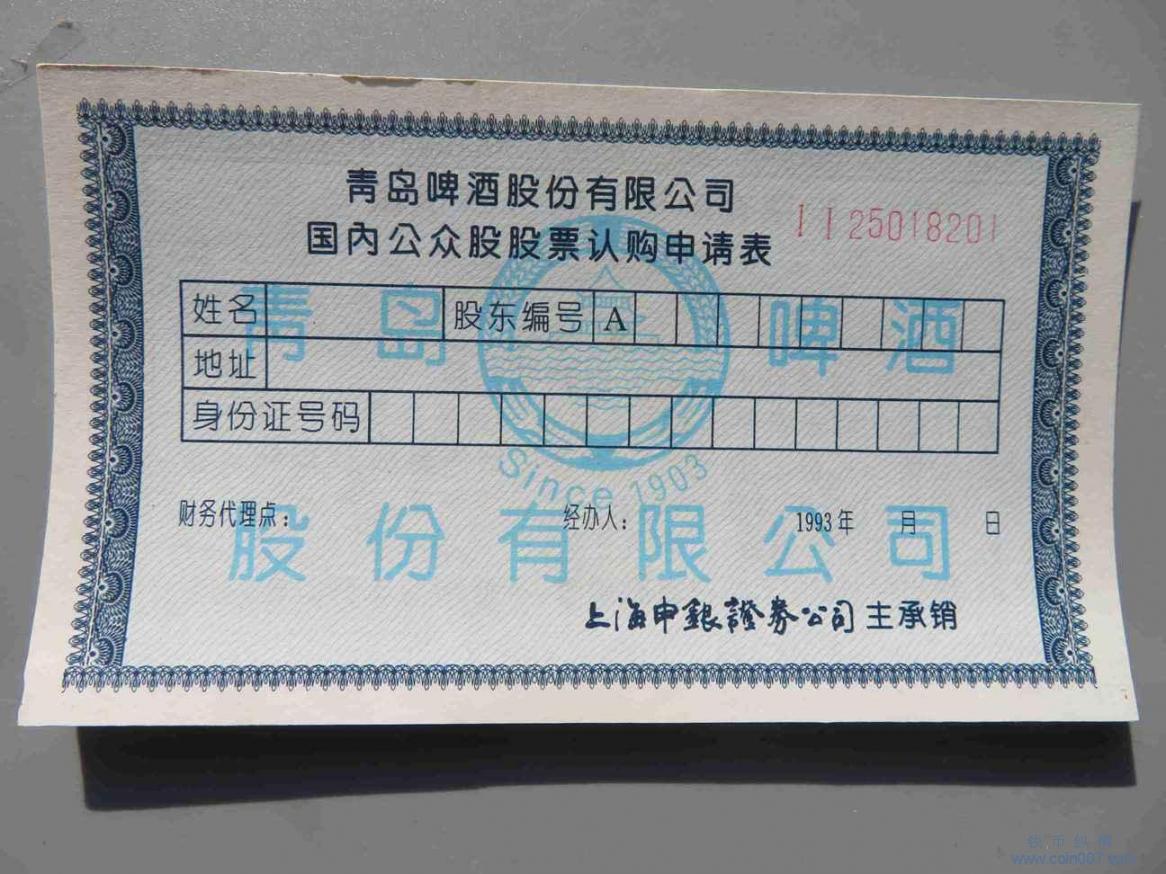 青岛啤酒股份有限公司
国内公众股股票认购申请表
I I 25018201
姓名 股东编号 A
地址
身份证号码
青岛 啤酒
Since 1903
财务代理点： 经办人： 1993年 月 日
股份有限公司
上海申銀證券公司 主承销
钱币纵横
www.coin007.com